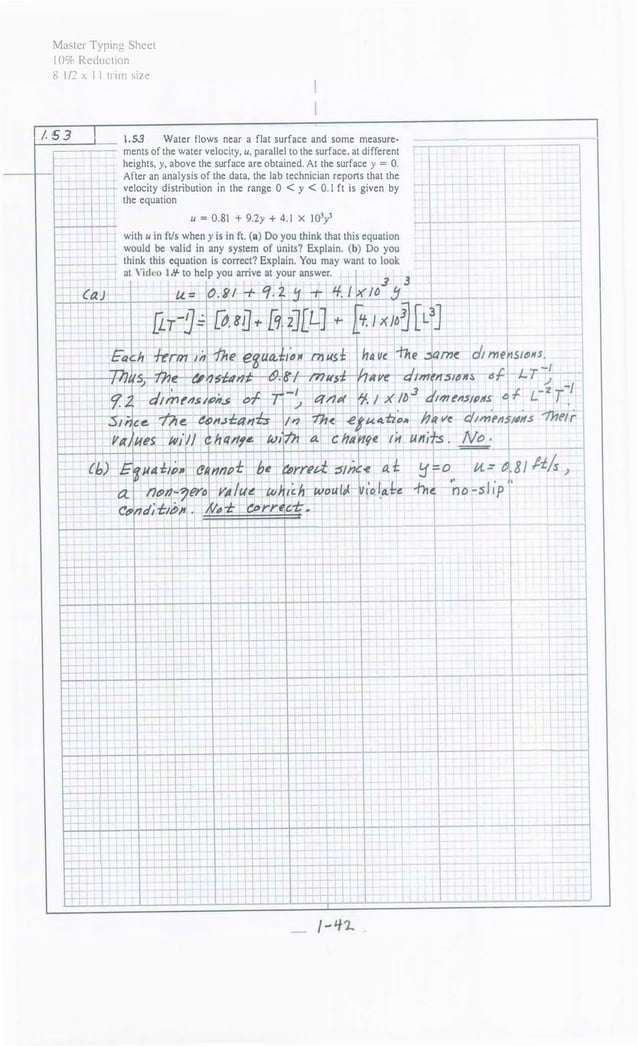 Master Typing Sheet
10% Reduction
8 1/2 x 11 trim size
1.53
1.53 Water flows near a flat surface and some measure-
ments of the water velocity, u, parallel to the surface, at different
heights, y, above the surface are obtained. At the surface y = 0.
After an analysis of the data, the lab technician reports that the
velocity distribution in the range 0 < y < 0.1 ft is given by
the equation
u = 0.81 + 9.2y + 4.1 × 10³y³
with u in ft/s when y is in ft. (a) Do you think that this equation
would be valid in any system of units? Explain. (b) Do you
think this equation is correct? Explain. You may want to look
at Video to help you arrive at your answer.
(a) u = 0.81 + 9.2 y + 4.1 x 10³ y³
[LT⁻¹] ≐ [0.81] + [9.2][L] + [4.1 x 10³][L³]
Each term in the equation must have the same dimensions.
Thus, the constant 0.81 must have dimensions of LT⁻¹,
9.2 dimensions of T⁻¹, and 4.1 x 10³ dimensions of L⁻²T⁻¹.
Since the constants in the equation have dimensions their
values will change with a change in units. No.
(b) Equation cannot be correct since at y=0 u = 0.81 ft/s,
a non-zero value which would violate the "no-slip"
condition. Not correct.
1-42